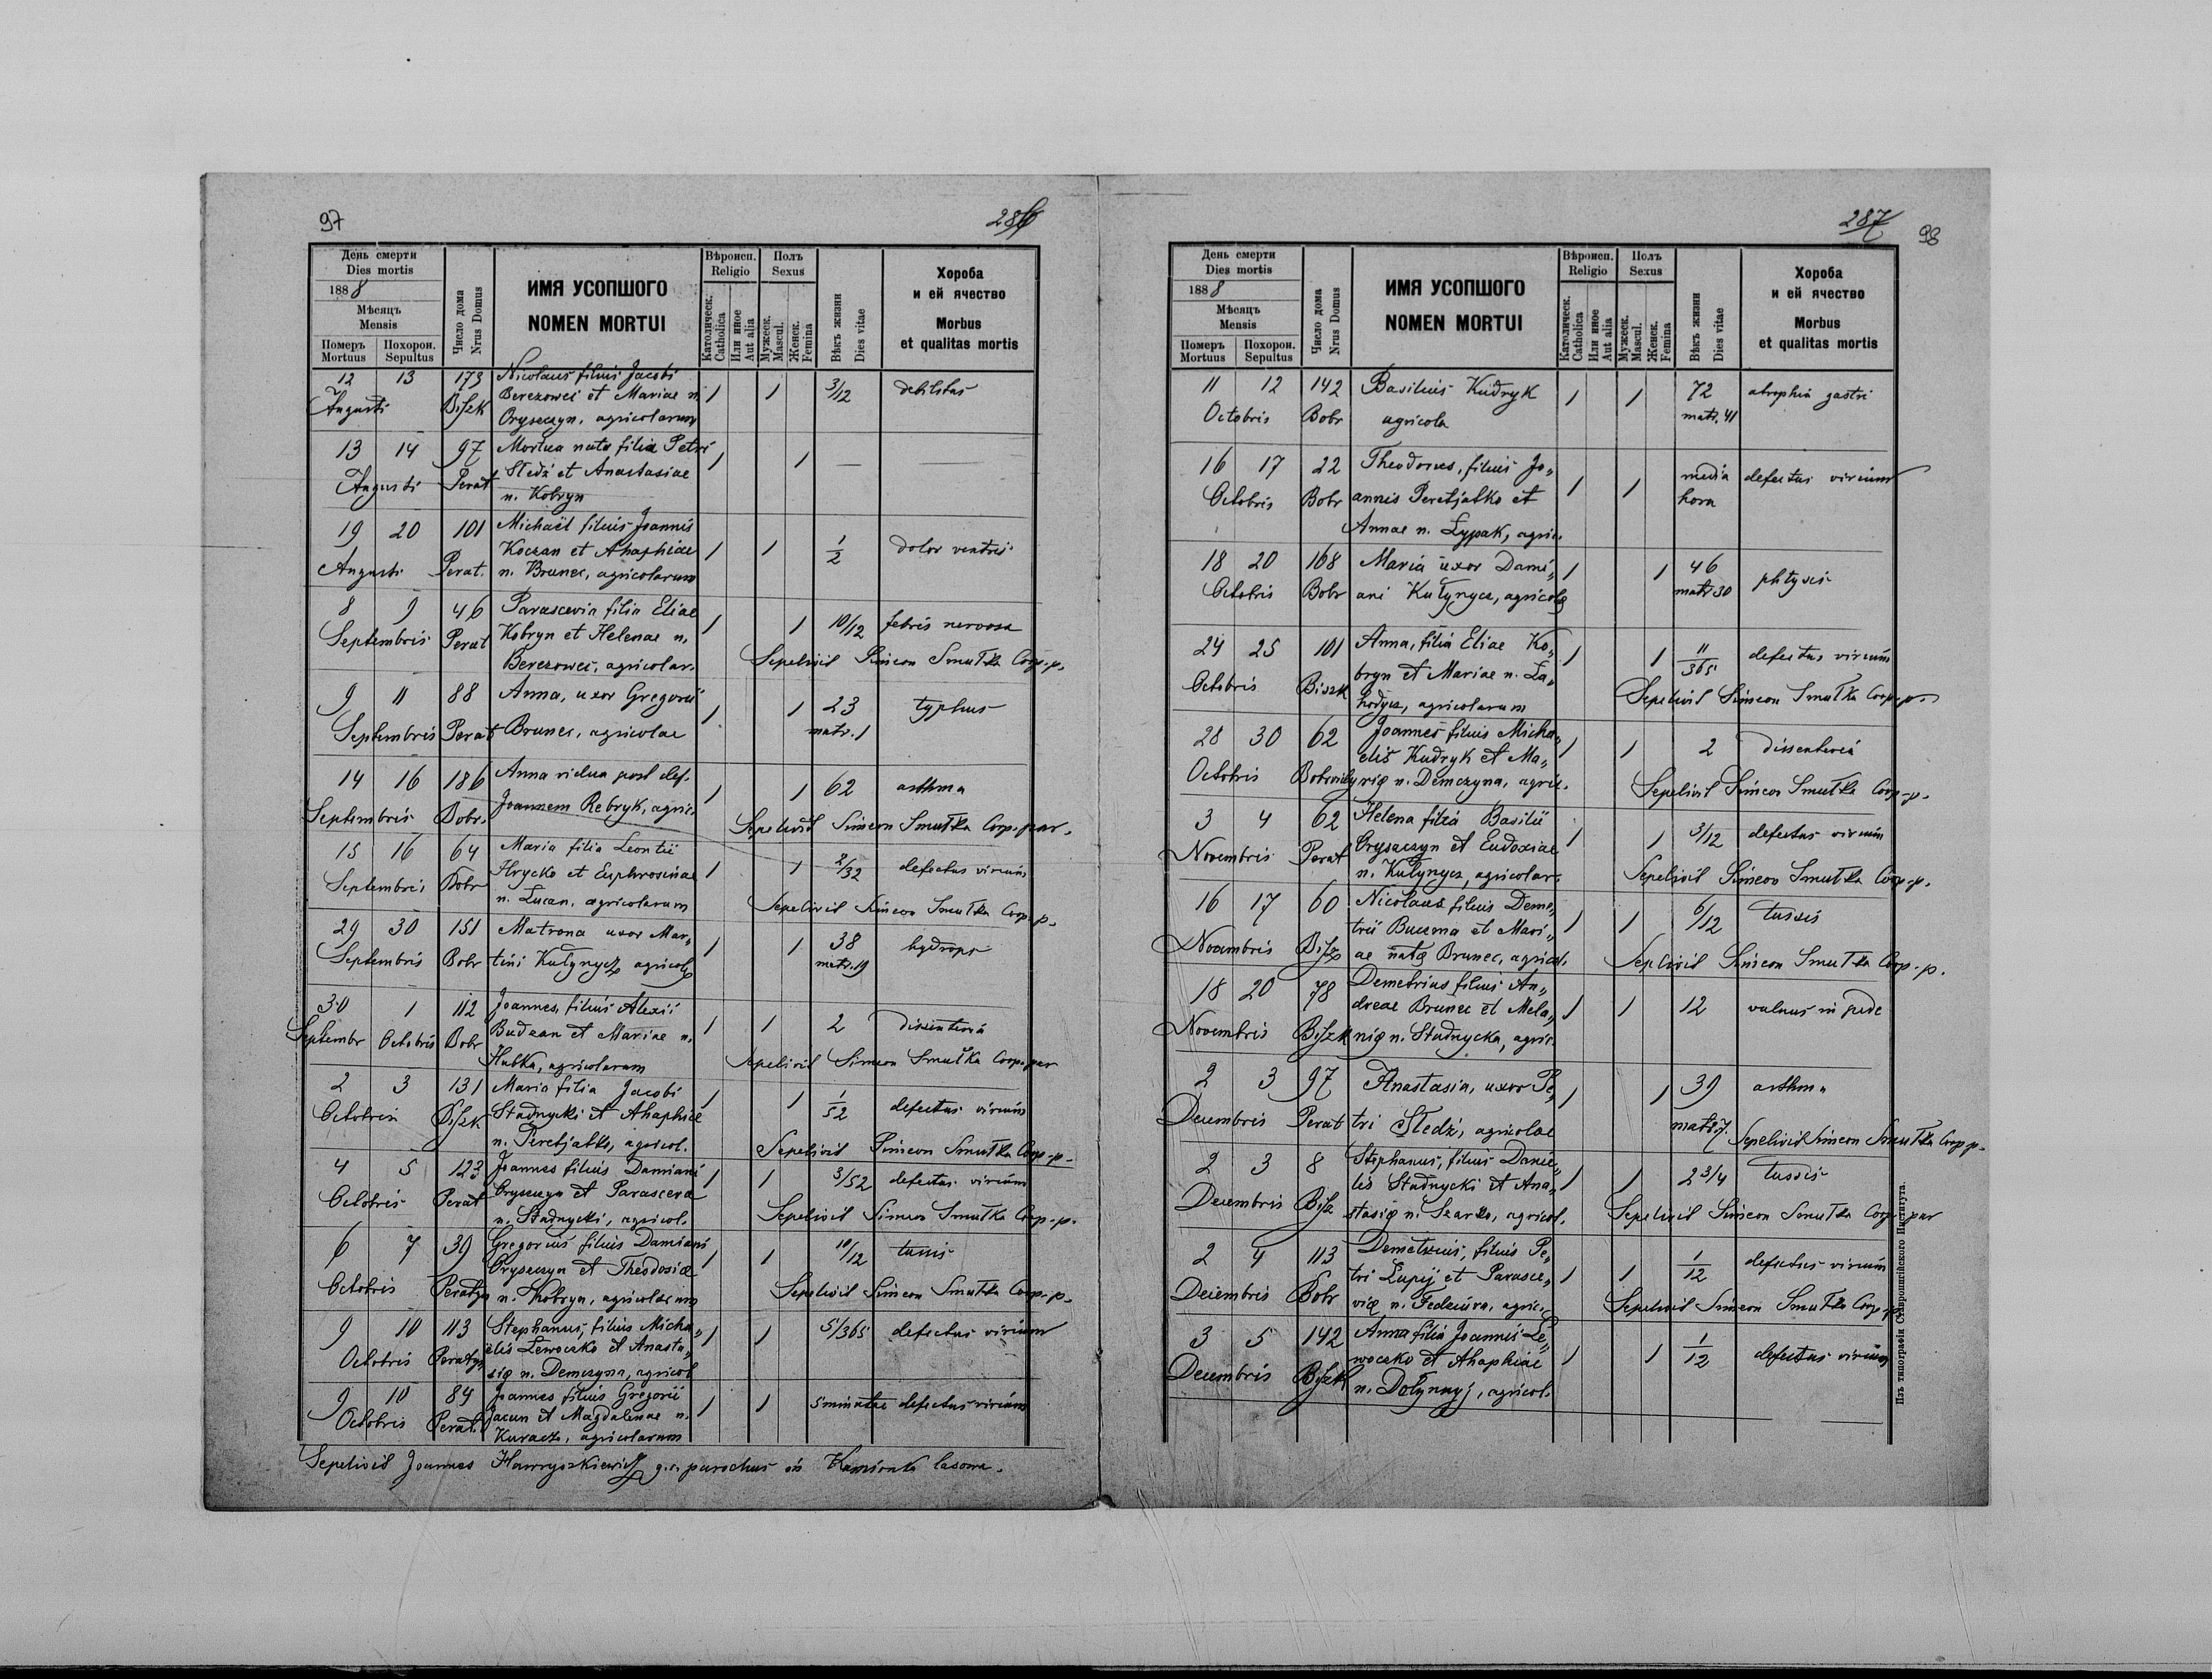 97
286
День смерти
Dies mortis
1888
Мѣсяцъ
Mensis
Померъ Mortuus
Похорон. Sepultus
Число дома
Nrus Domus
ИМЯ УСОПШОГО
NOMEN MORTUI
Вѣроисп.
Religio
Католическ.
Catholica
Или иное
Aut alia
Полъ
Sexus
Мужеск.
Mascul.
Женск.
Femina
Вѣкъ жизни
Dies vitae
Хороба
и ей ячество
Morbus
et qualitas mortis
12 13 173 Nicolaus filius Jacobi
Augusti Biszk Berezowei et Mariae n. 1 1 3/12 debilitas
Oryseczyn, agricolarum
13 14 97 Mortua nata filia Petri
Augusti Perat Sledź et Anastasiae 1 1 —
n. Kobryn
19 20 101 Michaël filius Joannis
Augusti Perat. Koczan et Ahaphiae 1 1 1/2 dolor ventris
n. Brunec, agricolarum
8 9 46 Parascevia filia Eliae
Septembris Perat Kobryn et Helenae n. 1 1 10/12 febris nervosa
Berezowei, agricolar. Sepelivit Simeon Smutka Coop. p.
9 11 88 Anna, uxor Gregorii 1 1 23 typhus
Septembris Perat Brunec, agricolae matr. 1
14 16 186 Anna vidua post def. 1 1 62 asthma
Septembris Bobr. Joannem Rebryk, agric.
Sepelivit Simeon Smutka Coop. par.
15 16 64 Maria filia Leontii
Septembris Bobr Hrycko et Euphrosinae 1 1 2/32 defectus virium
n. Lucan, agricolarum Sepelivit Simeon Smutka Coop. p.
29 30 151 Matrona uxor Mar„ 1 1 38 hydrops
Septembris Bobr tini Kułynycz agricolę matr. 19
30 1 112 Joannes, filius Alexii
Septembr Octobris Bobr Budzan et Mariae n. 1 1 2 dissenteria
Hubka, agricolarum Sepelivit Simeon Smutka Coop. par
2 3 131 Maria filia Jacobi
Octobris Biszk Stadnycki et Ahaphiae 1 1 1/52 defectus virium
n. Peretjatko, agricol. Sepelivit Simeon Smutka Coop. p.
4 5 123 Joannes filius Damiani
Octobris Perat Oryseczyn et Parascevæ 1 1 3/52 defectus virium
n. Stadnycki, agricol. Sepelivit Simeon Smutka Coop. p.
6 7 39 Gregorius filius Damiani
Octobris Peratyn Oryseczyn et Theodosiæ 1 1 10/12 tussis
n. Kobryn, agricolarum Sepelivit Simeon Smutka Coop. p.
9 10 113 Stephanus, filius Micha„
Octobris Peratyn elis Lewoczko et Anasta„ 1 1 5/365 defectus virium
się n. Demczyna, agricol
9 10 84 Joannes filius Gregorii
Octobris Perat. Jacun et Magdalenae n. 1 1 5 minutae defectus virium
Kuracz, agricolarum
Sepelivit Joannes Hawryszkiewicz g. r. parochus in Kamionka lasowa.
287
98
День смерти
Dies mortis
1888
Мѣсяцъ
Mensis
Померъ Mortuus
Похорон. Sepultus
Число дома
Nrus Domus
ИМЯ УСОПШОГО
NOMEN MORTUI
Вѣроисп.
Religio
Католическ.
Catholica
Или иное
Aut alia
Полъ
Sexus
Мужеск.
Mascul.
Женск.
Femina
Вѣкъ жизни
Dies vitae
Хороба
и ей ячество
Morbus
et qualitas mortis
11 12 142 Basilius Kudryk 1 1 72 atrophia gastri
Octobris Bobr agricola matr. 41
16 17 22 Theodorus, filius Jo„
Octobris Bobr annis Peretjatko et 1 1 media hora defectus virium
Annae n. Lypak, agric.
18 20 168 Maria uxor Dami„ 1 1 46 phtysis
Octobris Bobr ani Kułynycz, agricolę matr 30
24 25 101 Anna, filia Eliae Ko„
Octobris Biszk bryn et Mariae n. La„ 1 1 11/365 defectus virium
hodycz, agricolarum Sepelivit Simeon Smutka Coop. p.
28 30 62 Joannes filius Micha„
Octobris elis Kudryk et Ma„ 1 1 2 dissenteria
rię n. Demczyna, agric. Sepelivit Simeon Smutka Coop. p.
3 4 62 Helena filia Basilii
Novembris Perat Oryseczyn et Eudoxiae 1 1 3/12 defectus virium
n. Kułynycz, agricolar. Sepelivit Simeon Smutka Coop. p.
16 17 60 Nicolaus filius Deme„
Novembris Bisz trii Buczma et Mari„ 1 1 6/12 tussis
ae natę Brunec, agricol. Sepelivit Simeon Smutka Coop. p.
18 20 78 Demetrius filius An„
Novembris Biszk dreae Brunec et Mela„ 1 1 12 vulnus in pede
nię n. Stadnycka, agric.
2 3 97 Anastasia, uxor Pe„ 1 1 39 asthma
Decembris Perat tri Sledź, agricolae matr 17.
Sepelivit Simeon Smutka Coop. p.
2 3 8 Stephanus, filius Danie„
Decembris Bisz lis Stadnycki et Ana„ 1 1 2 3/4 tussis
stasię n. Szarko, agricol. Sepelivit Simeon Smutka Coop. par
2 4 113 Demetrius, filius Pe„
Decembris Bobr tri Łupij et Parasce„ 1 1 1/12 defectus virium
vię n. Fedciura, agric. Sepelivit Simeon Smutka Coop. p.
3 5 142 Anna filia Joannis Le„
Decembris Biszk woczko et Ahaphiae 1 1 1/12 defectus virium
n. Dołynnyj, agricol.
Изъ типографіи Ставропигійского Института.